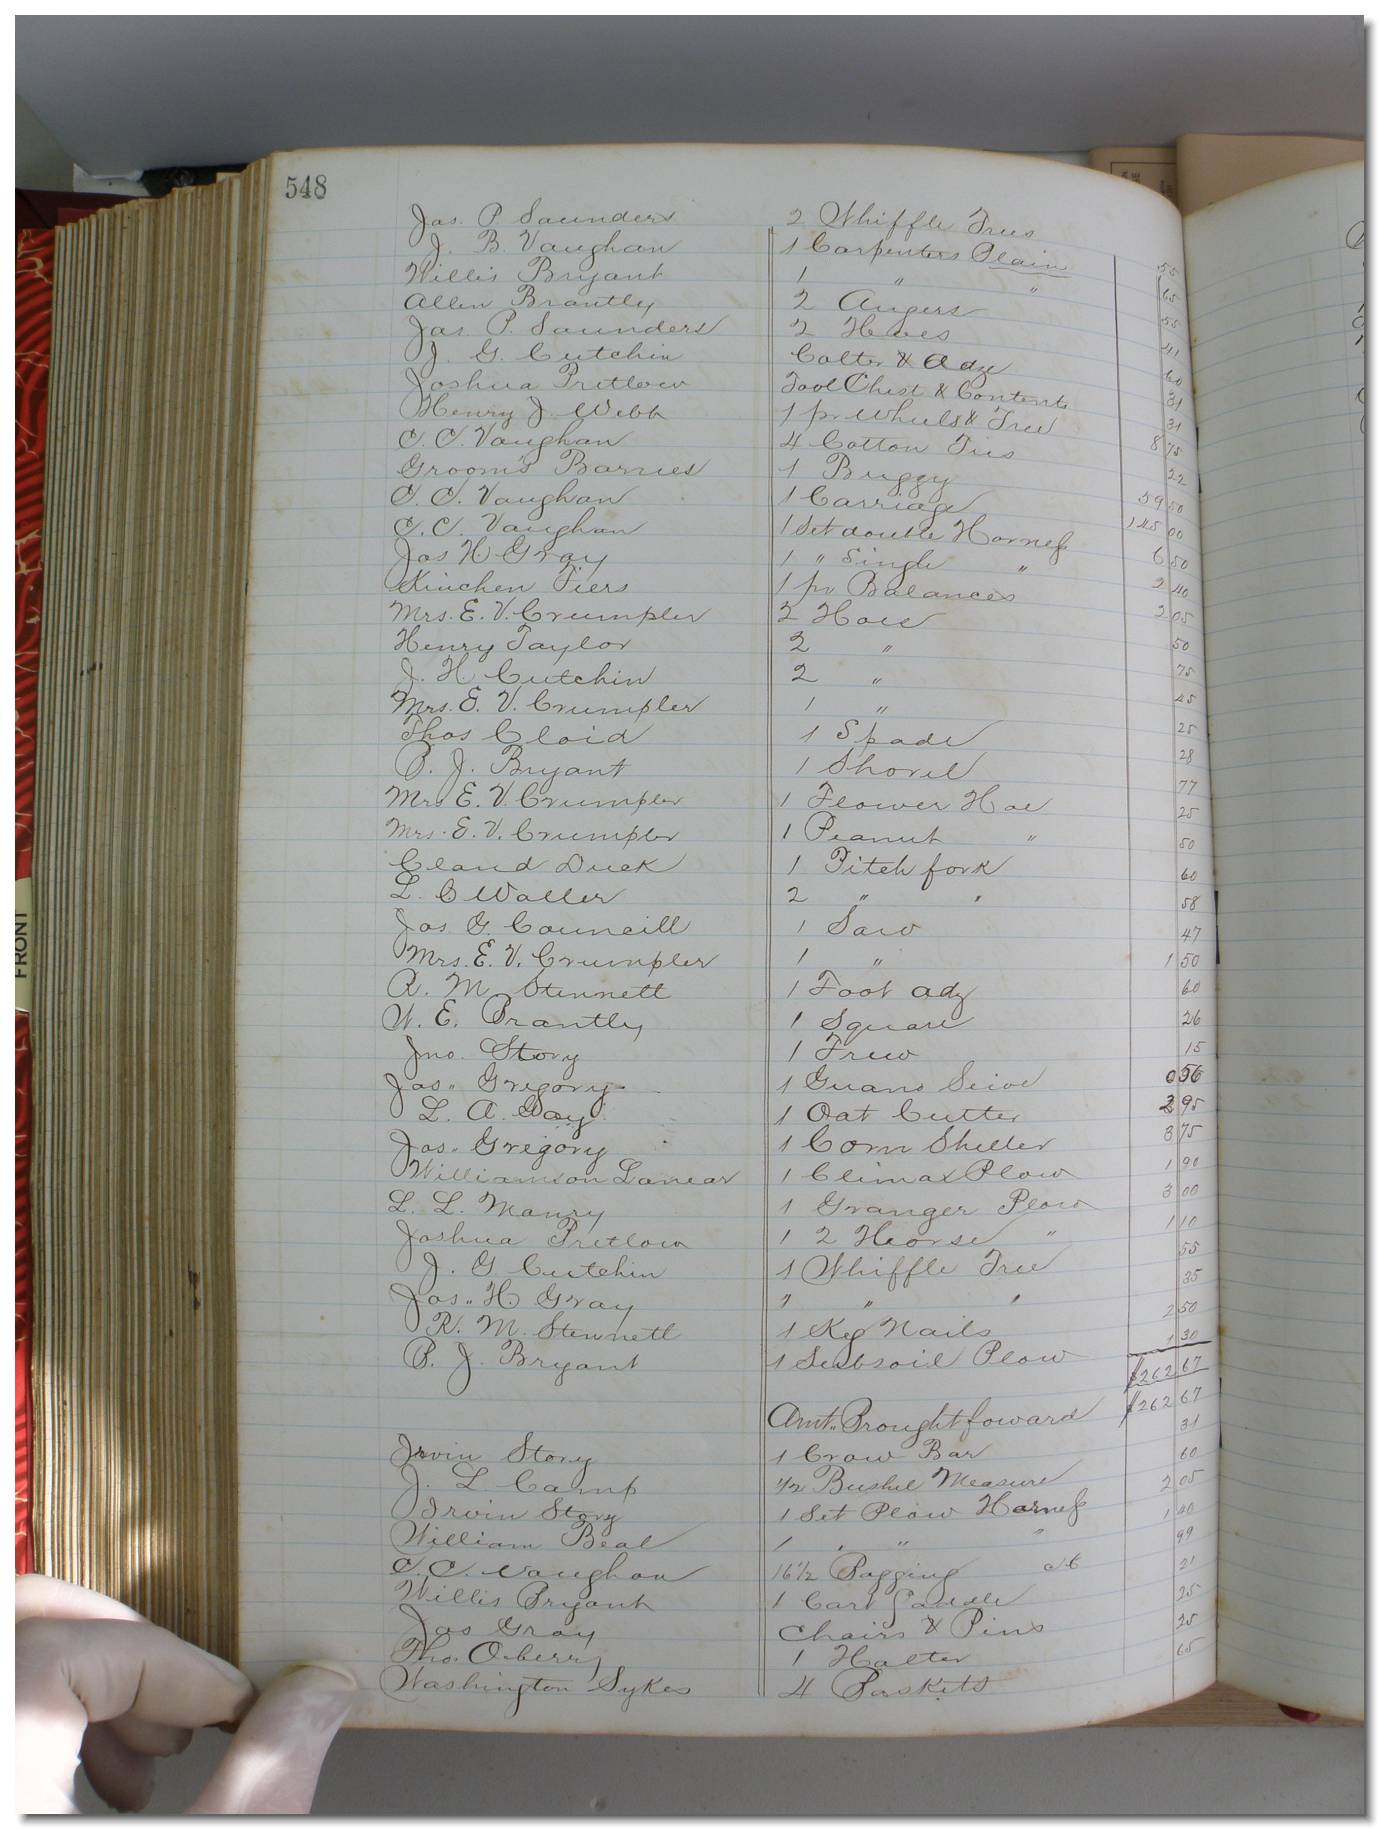 548
Jas. P. Saunders 2 Whiffle Trees 55
J. B. Vaughan 1 Carpenters Plain 65
Willis Bryant 1 " " 55
Allen Brantly 2 Augers 41
Jas. P. Saunders 2 Hoes 60
J. G. Cutchin Colter & Adze 31
Joshua Pretlow Tool Chest & Contents 31
Henry J. Webb 1 pr Wheels & Tree 8 75
C. C. Vaughan 4 Cotton Ties 22
Grooms Barnes 1 Buggy 59 50
C. C. Vaughan 1 Carriage 145 00
C. C. Vaughan 1 Set double Harness 6 50
Jas H. Gray 1 " Single " 2 40
Kinchen Tiers 1 pr Balances 2 05
Mrs. E. V. Crumpler 2 Hoes 50
Henry Taylor 2 " 75
J. H. Cutchin 2 " 45
Mrs. E. V. Crumpler 1 " 25
Thos Cloid 1 Spade 28
P. J. Bryant 1 Shovel 77
Mrs E. V. Crumpler 1 Flower Hoe 25
Mrs. E. V. Crumpler 1 Peanut " 50
Cland Duck 1 Pitch fork 60
L. C Waller 2 " " 58
Jas. G. Councill 1 Saw 47
Mrs. E. V. Crumpler 1 " 1 50
R. M. Stennett 1 Foot adz 60
W. E. Brantly 1 Square 26
Jno. Story 1 Frew 15
Jas. Gregory 1 Guano Seive 056
L. A. Gay 1 Oat Cutter 2 95
Jas. Gregory 1 Corn Sheller 3 75
Williamson Lanear 1 Climax Plow 1 90
L. L. Manry 1 Granger Plow 3 00
Joshua Pretlow 1 2 Horse " 1 10
J. G Cutchin 1 Whiffle Tree 55
Jas. H. Gray " " " 35
R. M. Stennett 1 Keg Nails 2 50
P. J. Bryant 1 Subsoil Plow 1 30
$262 67
Amt. Brought foward $262 67
Irvin Story 1 Crow Bar 31
J. L. Camp 1/2 Bushel Measure 60
Irvin Story 1 Set Plow Harness 2 05
William Beal 1 " " " 1 40
C. C. Vaughan 16 1/2 Bagging 99
Willis Bryant 1 Cart Saddle 21
Jas Gray Chairs & Pins 25
Tho. Oberry 1 Halter 25
Washington Sykes 4 Baskets 65
FRONT